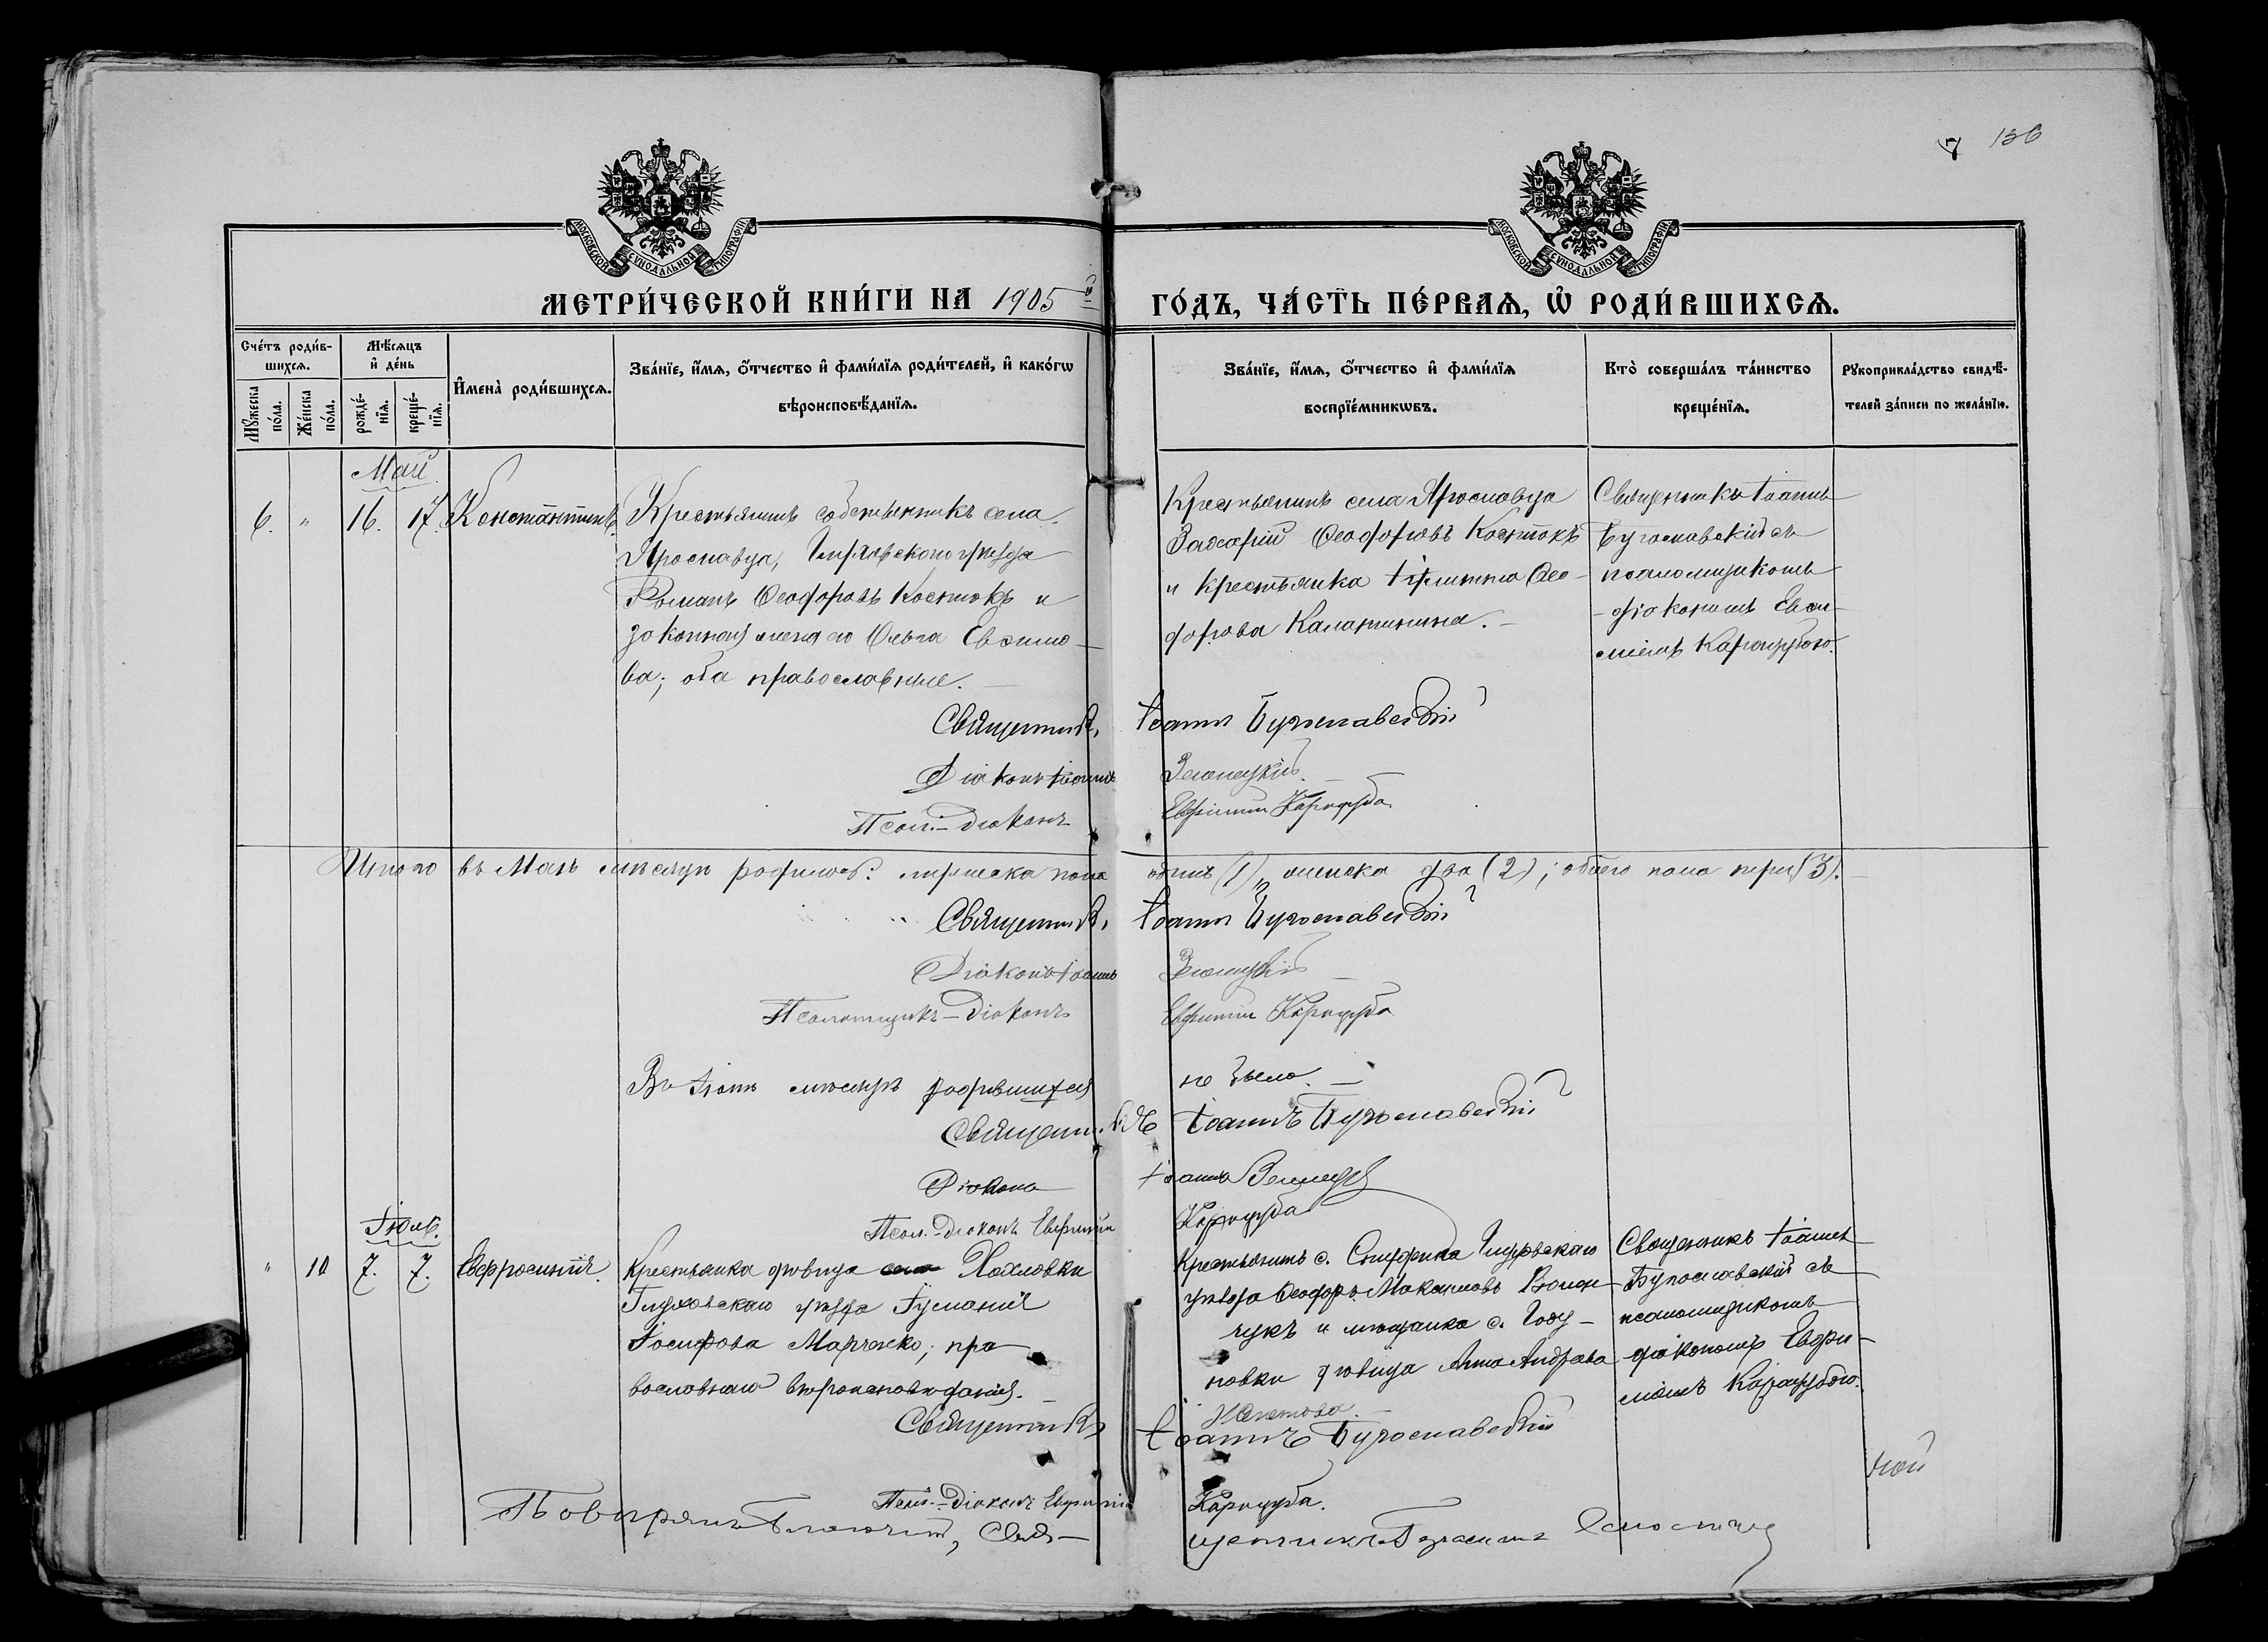 7 136
МОСКОВСКОЙ СѴНОДАЛЬНОЙ ТИПОГРАФІИ
МОСКОВСКОЙ СѴНОДАЛЬНОЙ ТИПОГРАФІИ
МЕТРИ́ЧЕСКОЙ КНИ́ГИ НА 1905 й ГО́ДЪ, ЧА́СТЬ ПЕ́РВАѦ, Ѡ҆ РОДИ́ВШИХСѦ.
Сче́тъ роди́в-
шихсѧ.
Мꙋ́жеска по́ла.
Же́нска по́ла.
Мѣ́сѧцъ
и҆ де́нь
рожде́-
нїѧ.
креще́-
нїѧ.
И҆мена̀ роди́вшихсѧ.
Зва́нїе, и҆́мѧ, ѻ҆́тчество и҆ фами́лїѧ роди́телей, и҆ како́гѡ
вѣроисповѣ́данїѧ.
Зва́нїе, и҆́мѧ, ѻ҆́тчество и҆ фами́лїѧ
воспрїе́мникѡвъ.
Кто̀ соверша́лъ та́инство
креще́нїѧ.
Рꙋкоприкла́дство свидѣ́-
телей за́писи по жела́нїю.
Май
6. " 16. 17. Константинъ.
Крестьянинъ собственникъ села
Ярославца, Глуховского уѣзда
Романъ Ѳеодоровъ Костюкъ и
законная жена его Ольга
ва; оба православные.
Крестьянинъ села Ярославца
Захарій Ѳеодоровъ Костюкъ
и крестьянка Ѳео-
дорова Калашникова.
Священникъ Іоаннъ
Бугославскій съ
псаломщикомъ
діакономъ Евѳи-
міемъ Карпздубою.
Священникъ Іоаннъ Бугославскій
Діаконъ Іоаннъ
Псал. - Діаконъ Евфимій
Итого въ Маѣ мѣсяцѣ родилось: мужеска пола одинъ (1), женска два (2); обоего пола три (3).
Священникъ Іоаннъ Бугославскій
Діаконъ Іоаннъ
Псаломщикъ - Діаконъ Евфимій
Въ Іюнѣ мѣсяцѣ родившихся не было.
Священникъ Іоаннъ Бугославскій
Діаконъ Іоаннъ
Псал. - Діаконъ Евфимій
Іюль.
" 10 7. 7. Евфросинія.
Крестьянка дѣвица Хохловки
Глуховскаго уѣзда Іуліанія
Іосифова Марченко; пра-
вославнаго вѣроисповѣданія.
Крестьянинъ с. Глуховскаго
уѣзда Ѳеодоръ Максимовъ
чукъ и мѣщанка с.
новки дѣвица Анна Андреева
Священникъ Іоаннъ
Бугославскій съ
псаломщикомъ
діакономъ Евфи-
міемъ
Священникъ Іоаннъ Бугославскій
Псал. - Діаконъ Евфимій
Повѣрялъ Благочин., Свя-
щенникъ
ной